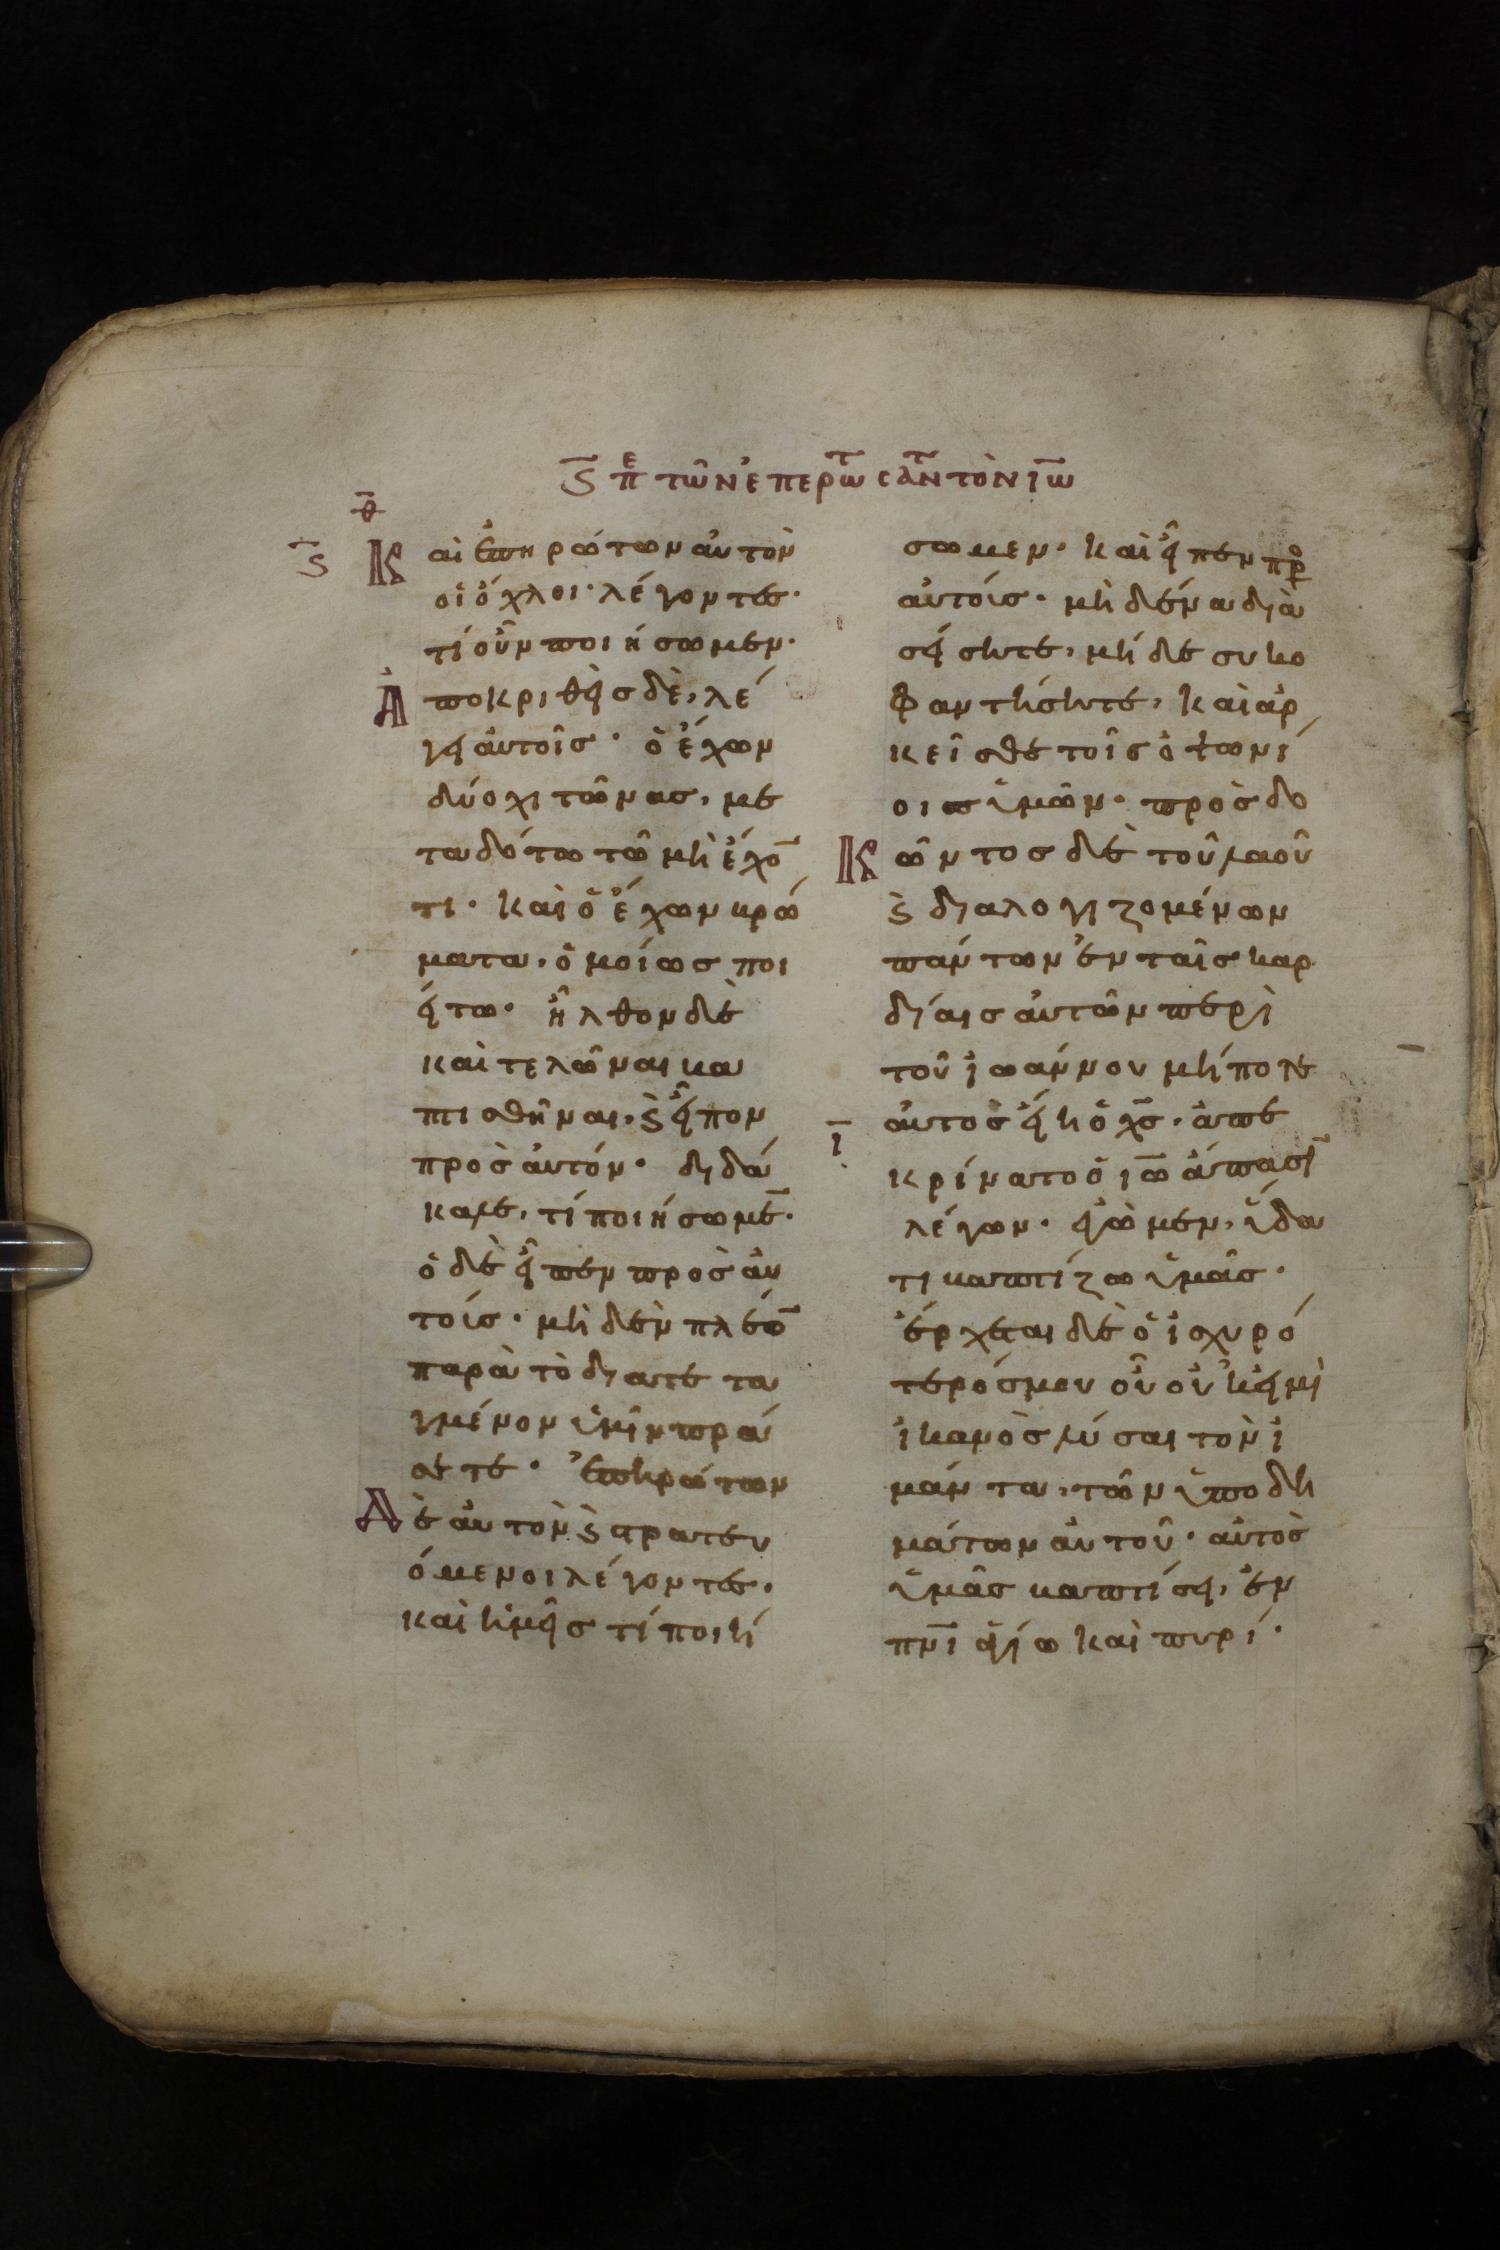 ϛ̅ πε τῶν ἐπερωτ σάντ τὸν ιω̅
θ̅
ϛ̅ Καὶ ἐπηρώτων αὐτὸν
οἱ ὄχλοι· λέγοντες·
τί οὖν ποιήσωμεν·
Ἀποκριθεὶς δὲ, λέ
γει αὐτοῖς· ὁ ἔχων
δύο χιτῶνας, με
ταδότω τῶ μὴ ἔχο̅
τι· καὶ ὁ ἔχων βρώ
ματα, ὁμοίως ποι
είτω· ἦλθον δὲ
καὶ τελῶναι βα
πτισθῆναι, ϗ εἶπον
πρὸς αὐτόν· διδά
σκαλε, τί ποιήσωμε̅·
ὁ δὲ εἶπεν πρὸς αὐ
τούς· μηδὲν πλέο̅
παρὰ τὸ διατετα
γμένον ὑμῖν πρά
σετε· ἐπηρώτων
Δὲ αὐτὸν ϗ στρατευ
όμενοι λέγοντες,
καὶ ἡμεῖς τί ποιή
σωμεν· καὶ εἶπεν πρ
αὐτούς· μηδένα δια
σείσητε, μὴδὲ συκο
φαντήσητε, καὶ ἀρ
κεῖσθε τοῖς ὀψωνί
οις ὑμῶν· προσδο
Κῶντος δὲ τοῦ λαοῦ
ϗ διαλογιζομένων
πάντων ἐν ταῖς καρ
δίαις αὐτῶν περὶ
τοῦ ἰωάννου μήποτε
ι̅ αὐτὸς εἴη ὁ χς̅, ἀπε
κρίνατο ὁ ιω̅ ἅπασι̅
λέγων· ἐγὼ μεν, ὕδα
τι βαπτίζω ὑμᾶς·
ἔρχεται δὲ ὁ ἰσχυρό
τερός μου οὗ οὐκ εἰμὶ
ἱκανὸς λύσαι τὸν ἱ
μάντα, τῶν ὑποδη
μάτων αὐτοῦ· αὐτὸς
ὑμᾶς βαπτίσει, ἐν
πνι̅ ἁγίω καὶ πυρί·